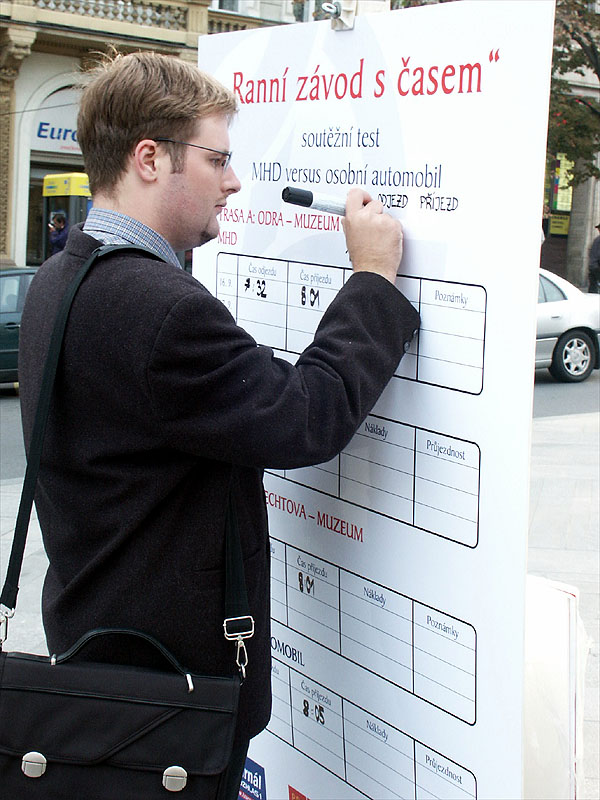 Euro
Ranní závod s časem“
soutěžní test
MHD versus osobní automobil
ODJEZD PŘÍJEZD
TRASA A: ODRA – MUZEUM
MHD
Čas odjezdu Čas příjezdu Poznámky
16. 9 7:32 8 01
Náklady Průjezdnost
ECHTOVA – MUZEUM
Čas příjezdu Náklady Poznámky
8 01
OMOBIL
Čas příjezdu Náklady Průjezdnost
8:05